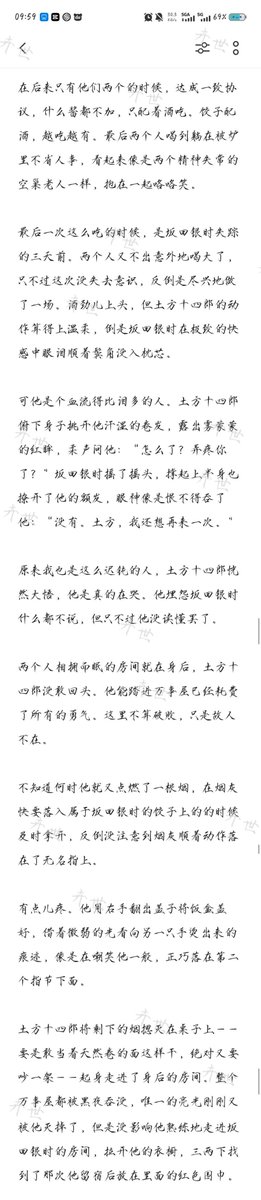 09:59
69%
在后来只有他们两个的时候，达成一致协
议，什么馨都不加，只配着酒吃。饺子配
酒，越吃越有。最后两个人喝到躺在被炉
里不省人事，看起来像是两个精神失常的
空巢老人一样，抱在一起咯咯笑。
最后一次这么吃的时候，是坂田银时失踪
的三天前。两个人又不出意外地喝大了，
只不过这次没失去意识，反倒是尽兴地做
了一场。酒劲儿上头，但土方十四郎的动
作算得上温柔，倒是坂田银时在极致的快
感中眼泪顺着鬓角没入枕芯。
可他是个血流得比泪多的人。土方十四郎
俯下身子挑开他汗湿的卷发，露出雾蒙蒙
的红眸，柔声问他：“怎么了？弄疼你
了？”坂田银时摇了摇头，撑起上半身也
撩开了他的额发，眼神像是恨不得吞了
他：“没有。土方，我还想再来一次。”
原来我也是这么迟钝的人，土方十四郎恍
然大悟，他是真的在哭。他埋怨坂田银时
什么都不说，但只不过他没读懂罢了。
两个人相拥而眠的房间就在身后，土方十
四郎没敢回头。他能踏进万事屋已经耗费
了所有的勇气。这里不算破败，只是故人
不在。
不知道何时他就又点燃了一根烟，在烟灰
快要落入属于坂田银时的饺子上的的时候
及时拿开，反倒没注意到烟灰顺着动作落
在了无名指上。
有点儿疼。他用右手翻出盖子将饭盒盖
好，借着微弱的光看向另一只手烫出来的
痕迹，像是在嘲笑他一般，正巧落在第二
个指节下面。
土方十四郎将剩下的烟摁灭在桌子上——
要是敢当着天然卷的面这样干，绝对又要
吵一架——起身走进了身后的房间。整个
万事屋都被黑夜吞没，唯一的亮光刚刚又
被他灭掉了，但是没影响他熟练地走进坂
田银时的房间，拉开他的衣橱，三两下找
到了那次他留宿后放在里面的红色围巾。